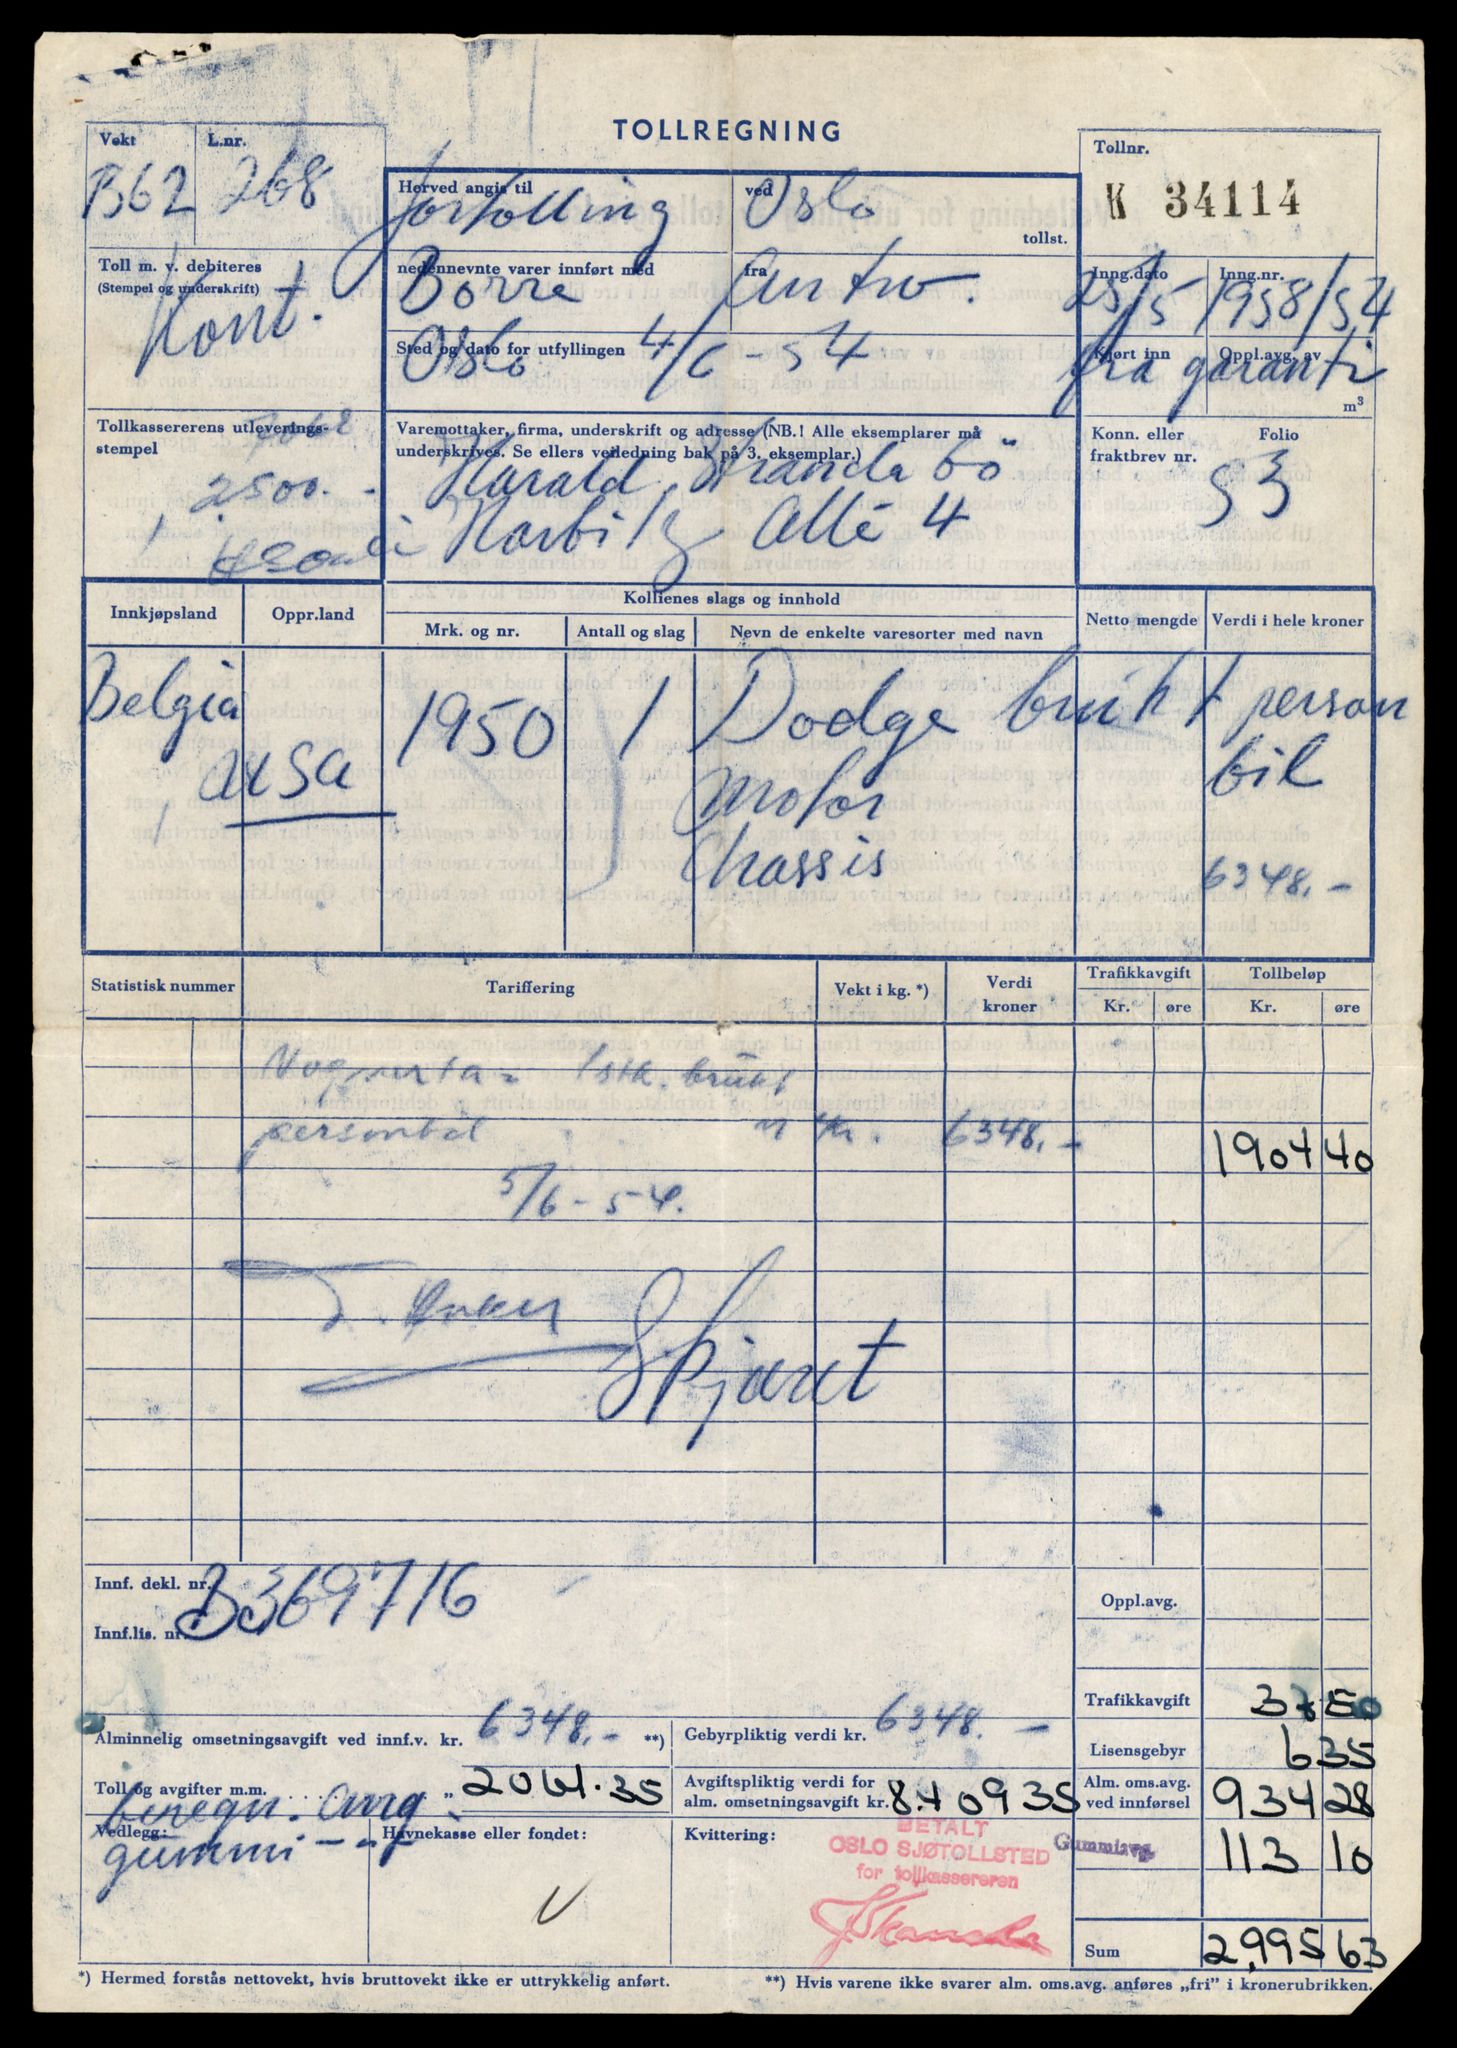 TOLLREGNING
Vekt
B62
L.nr.
268
Herved angis til
fortolling
ved
Oslo
tollst.
Tollnr.
K 34114
Toll m. v. debiteres
(Stempel og underskrift)
Kont.
nedennevnte varer innført med
Borre
fra
Antw.
Inng.dato
25/5
Inng.nr.
1958/54
Sted og dato for utfyllingen
Oslo 4/6-54
Kjørt inn
Oppl.avg. av
m³
fra garanti
Tollkassererens utleverings-
stempel
2500.-
Varemottaker, firma, underskrift og adresse (NB.! Alle eksemplarer må
underskrives. Se ellers veiledning bak på 3. eksemplar.)
Harald Strandabö
Allé 4
Konn. eller
fraktbrev nr.
Folio
53
Innkjøpsland
Oppr.land
Kollienes slags og innhold
Mrk. og nr.
Antall og slag
Nevn de enkelte varesorter med navn
Netto mengde
Verdi i hele kroner
Belgia
USA
1950
1
Dodge brukt person
bil
Motor
Chassis
6348.-
Statistisk nummer
Tariffering
Vekt i kg. *)
Verdi
kroner
Trafikkavgift
Kr.
øre
Tollbeløp
Kr.
øre
1 stk. brukt
personbil
kr.
6348.-
1904 40
5/6-54.
Skjæret
Innf. dekl. nr.
B369716
Innf.lis. nr.
Oppl.avg.
Trafikkavgift
37 50
Alminnelig omsetningsavgift ved innf.v. kr. 6348.- **)
Gebyrpliktig verdi kr. 6348.-
Lisensgebyr
6 35
Toll og avgifter m.m. ........ „ 2061.35
Avgiftspliktig verdi for
alm. omsetningsavgift kr. 8.409 35
Alm. oms.avg.
ved innførsel
934 28
Vedlegg:
gummi - " -
Havnekasse eller fondet:
Kvittering:
BETALT
OSLO SJØTOLLSTED
for tollkassereren
Gummiavg.
113 10
Sum
2,995 63
*) Hermed forstås nettovekt, hvis bruttovekt ikke er uttrykkelig anført.
**) Hvis varene ikke svarer alm. oms.avg. anføres „fri” i kronerubrikken.